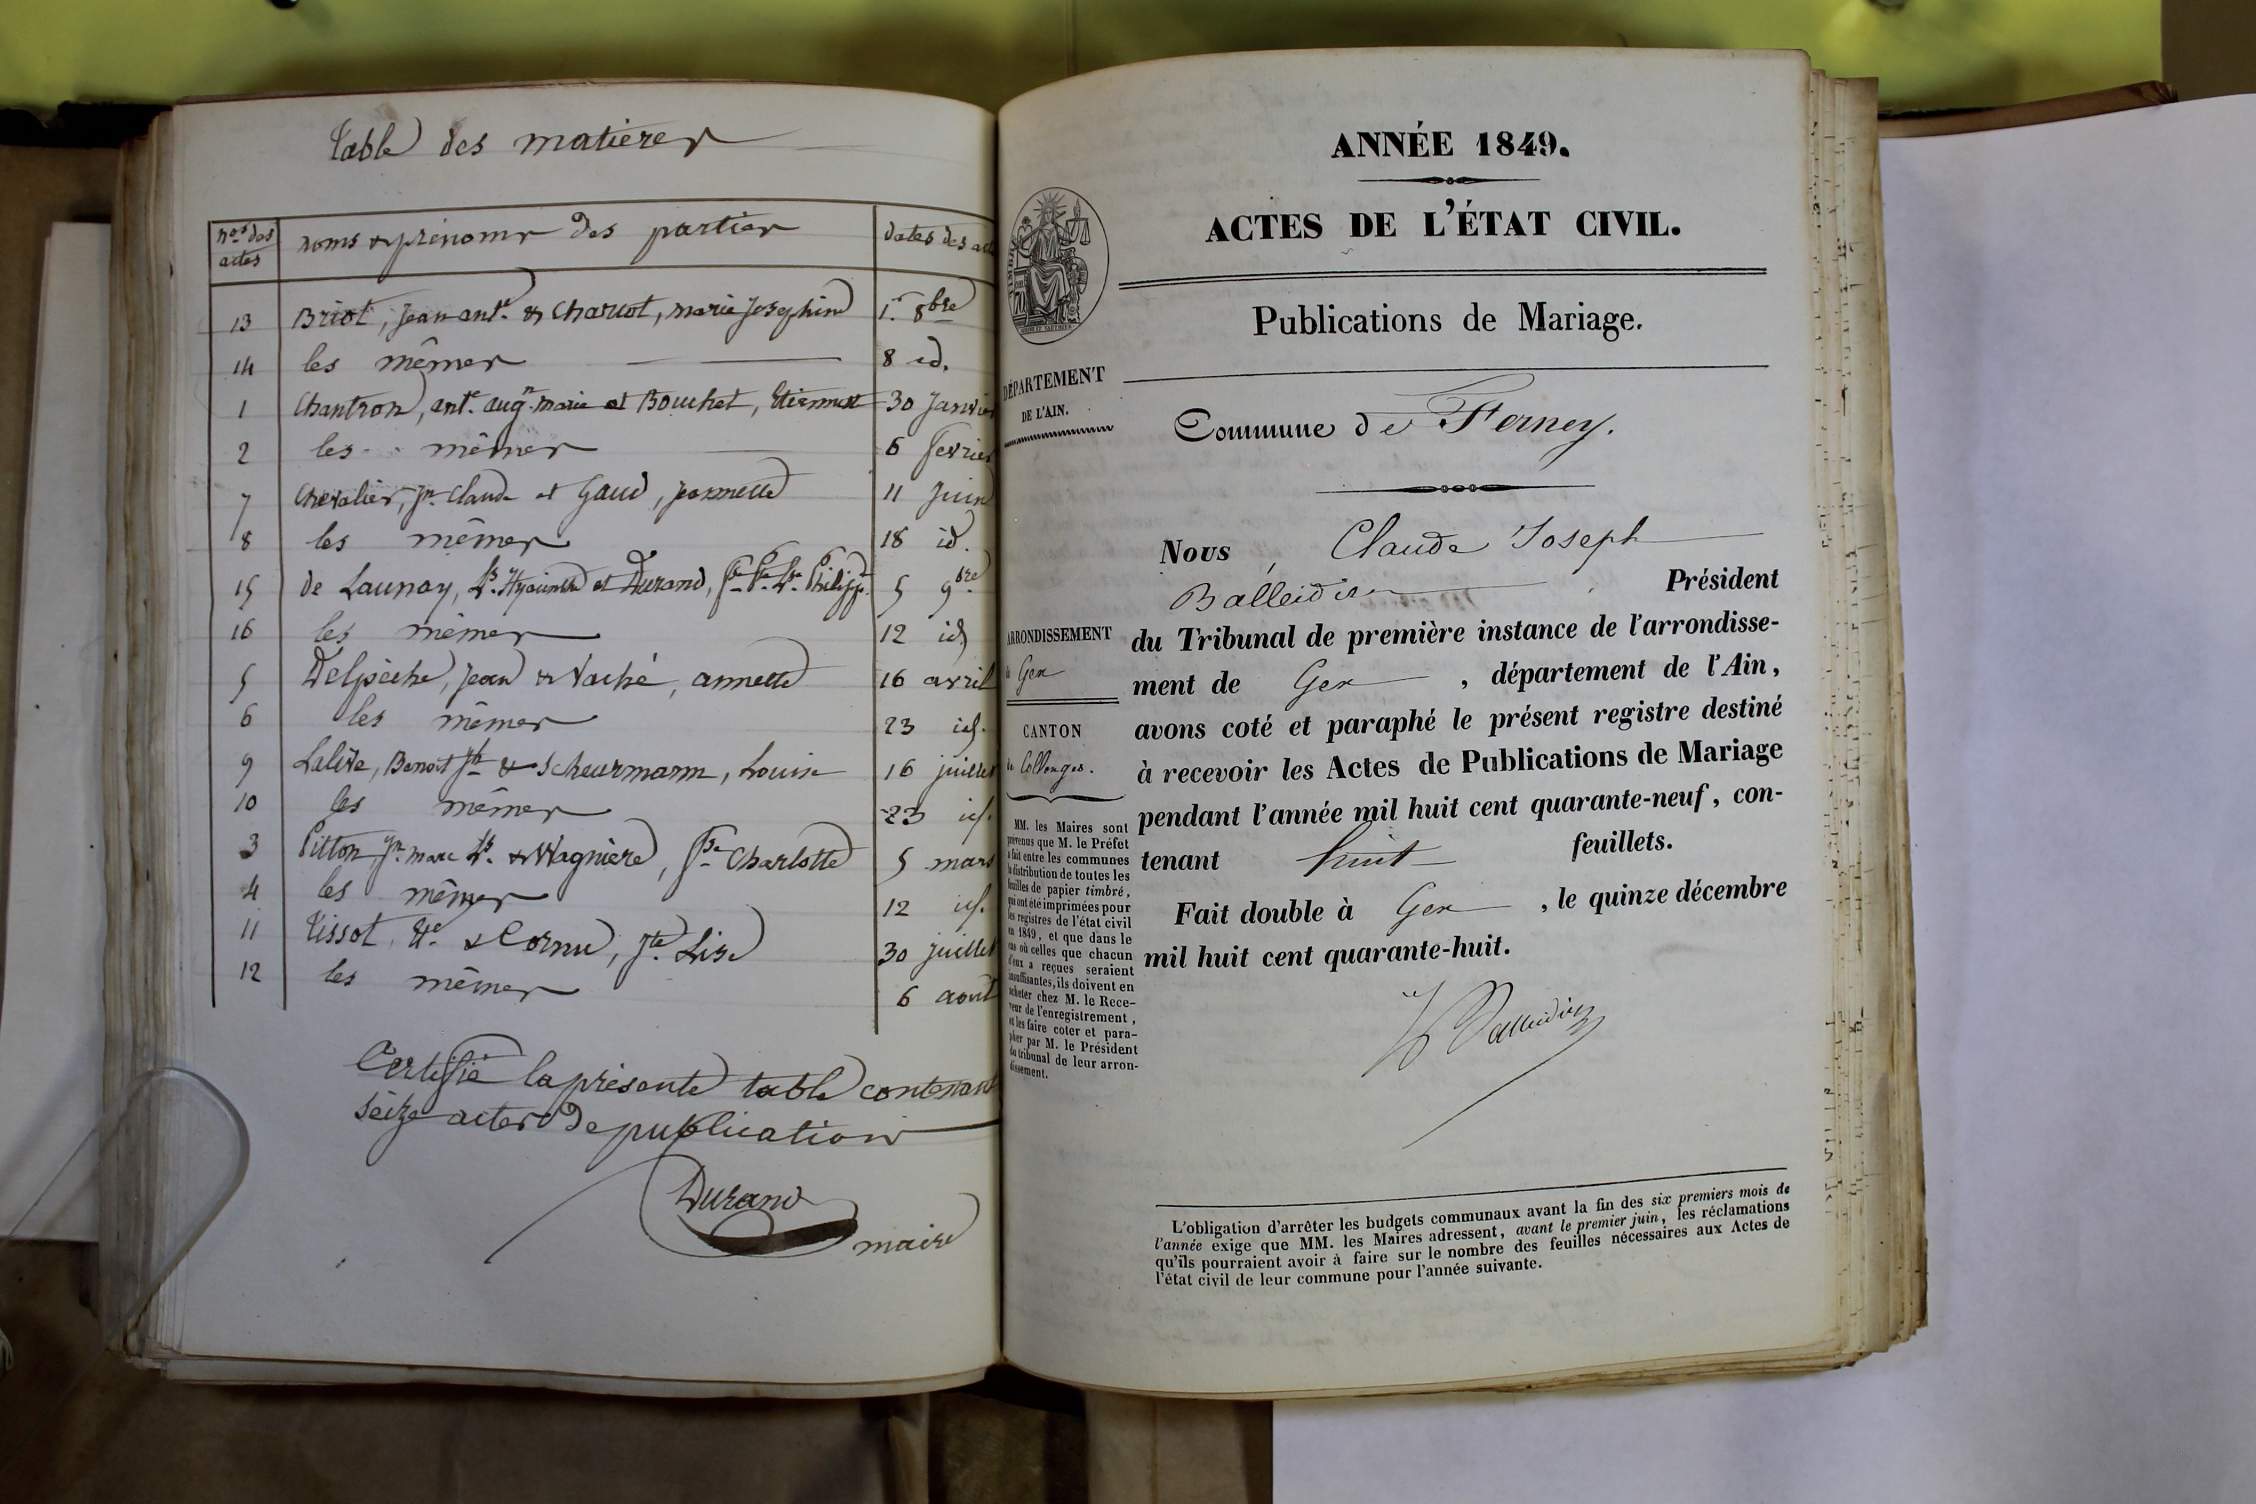 Table des matieres
nos des actes
noms & prénoms des parties
dates des actes
13 Briot, Jean ant. & Charlot, marie Josephine 1er 8bre
14 les mêmes 8 id.
1 Chantron, ant. augn marie et Bouchet, Etiennette 30 Janvier
2 les mêmes 6 fevrier
7 Chevalier, Jn Claude et Gaud, Jeannette 11 Juin
8 les mêmes 18 id.
15 de Launay, Ls Hyacinthe et Durand, Philipp. 5 9bre
16 les mêmes 12 id
5 Delpèche, Jean & Vaché, annette 16 avril
6 les mêmes 23 id.
9 Lalive, Benoit & Scheurmann, Louise 16 juillet
10 les mêmes 23 id.
3 Pitton, Jn marc Ls & Wagnière, Fse Charlotte 5 mars
4 les mêmes 12 id.
11 Tissot, & Cornu, Jte Lise 30 juillet
12 les mêmes 6 aout
Certifié la présente table contenant
seize actes de publication
Durand
maire
ANNÉE 1849.
ACTES DE L'ÉTAT CIVIL.
Publications de Mariage.
DÉPARTEMENT
DE L'AIN.
Commune de Ferney.
Nous, Claude Joseph
Balleidier Président
du Tribunal de première instance de l'arrondisse-
ment de Gex, département de l'Ain,
avons coté et paraphé le présent registre destiné
à recevoir les Actes de Publications de Mariage
pendant l'année mil huit cent quarante-neuf, con-
tenant huit feuillets.
Fait double à Gex, le quinze décembre
mil huit cent quarante-huit.
Balleidier
ARRONDISSEMENT
de Gex
CANTON
de Collonges.
MM. les Maires sont
prévenus que M. le Préfet
a fait entre les communes
la distribution de toutes les
feuilles de papier timbré,
qui ont été imprimées pour
les registres de l'état civil
en 1849, et que dans le
cas où celles que chacun
d'eux a reçues seraient
insuffisantes, ils doivent en
acheter chez M. le Rece-
veur de l'enregistrement,
et les faire coter et para-
pher par M. le Président
du tribunal de leur arron-
dissement.
L'obligation d'arrêter les budgets communaux avant la fin des six premiers mois de
l'année exige que MM. les Maires adressent, avant le premier juin, les réclamations
qu'ils pourraient avoir à faire sur le nombre des feuilles nécessaires aux Actes de
l'état civil de leur commune pour l'année suivante.